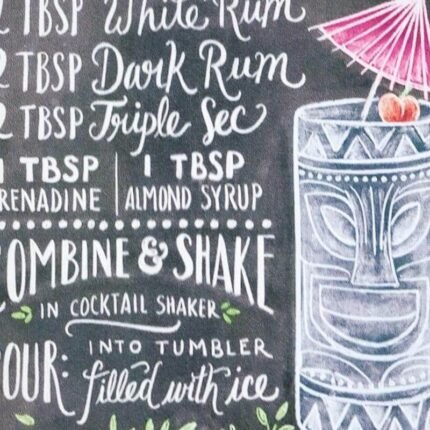 2 TBSP White Rum
2 TBSP Dark Rum
2 TBSP Triple Sec
1 TBSP | 1 TBSP
RENADINE | ALMOND SYRUP
COMBINE & SHAKE
IN COCKTAIL SHAKER
OUR: INTO TUMBLER
filled with ice